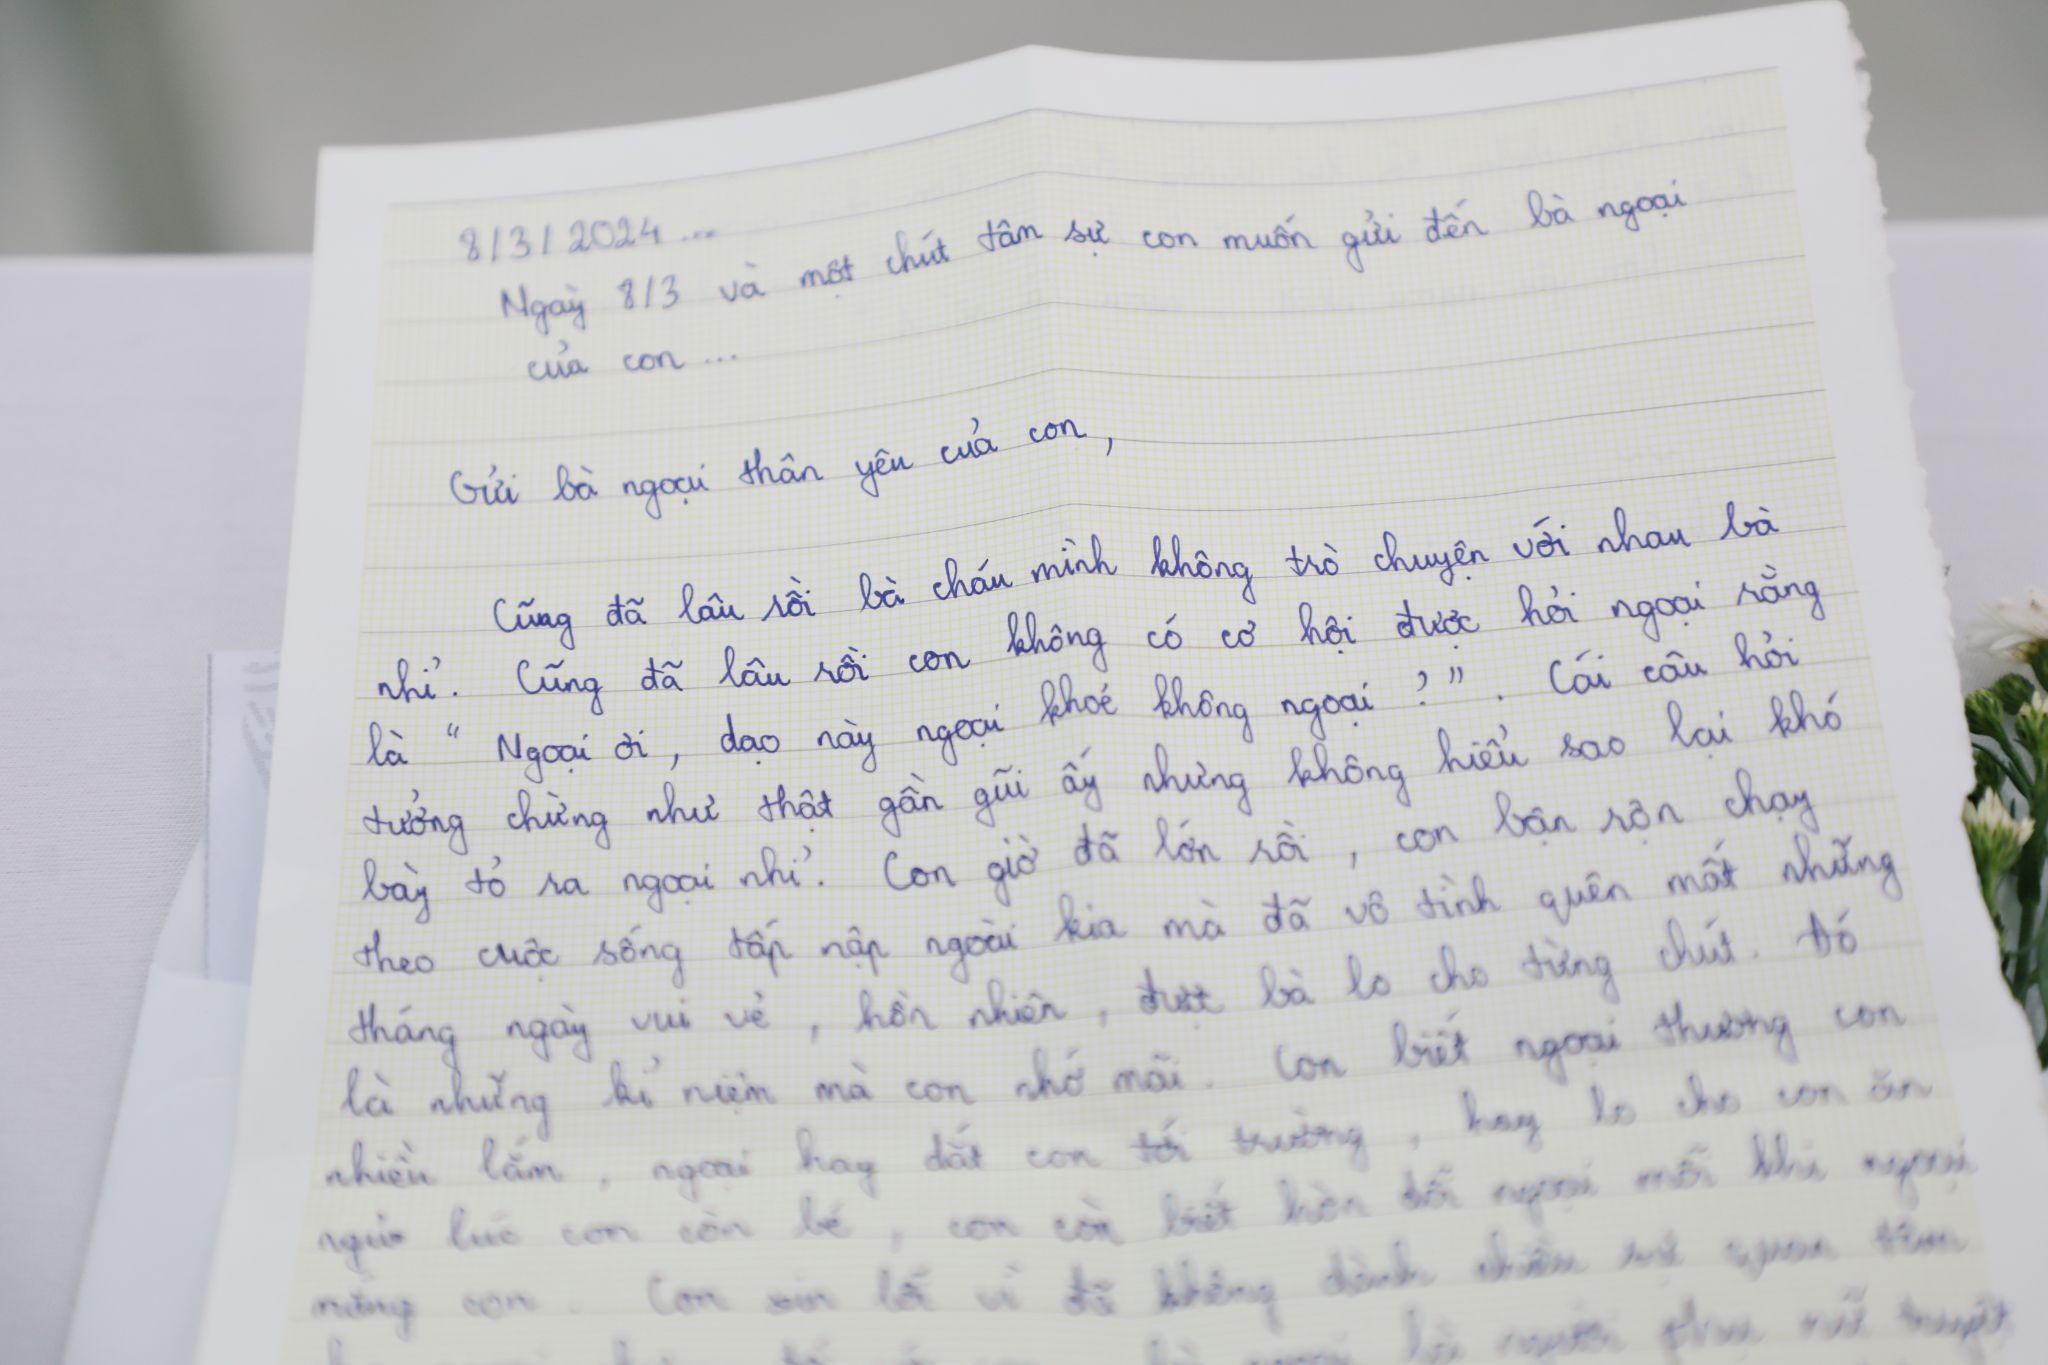 8/3/2024...
Ngày 8/3 và một chút tâm sự con muốn gửi đến bà ngoại
của con...
Gửi bà ngoại thân yêu của con,
Cũng đã lâu rồi bà cháu mình không trò chuyện với nhau bà
nhỉ. Cũng đã lâu rồi con không có cơ hội được hỏi ngoại rằng
là "Ngoại ơi, dạo này ngoại khoẻ không ngoại?". Cái câu hỏi
tưởng chừng như thật gần gũi ấy nhưng không hiểu sao lại khó
bày tỏ ra ngoại nhỉ. Con giờ đã lớn rồi, con bận rộn chạy
theo cuộc sống tấp nập ngoài kia mà đã vô tình quên mất những
tháng ngày vui vẻ, hồn nhiên, được bà lo cho từng chút. Đó
là những kỉ niệm mà con nhớ mãi. Con biết ngoại thương con
nhiều lắm, ngoại hay dắt con tới trường, hay lo cho con ăn
ngủ lúc con còn bé, con còn biết hờn dỗi ngoại mỗi khi ngoại
mắng con. Con xin lỗi vì đã không dành nhiều sự quan tâm